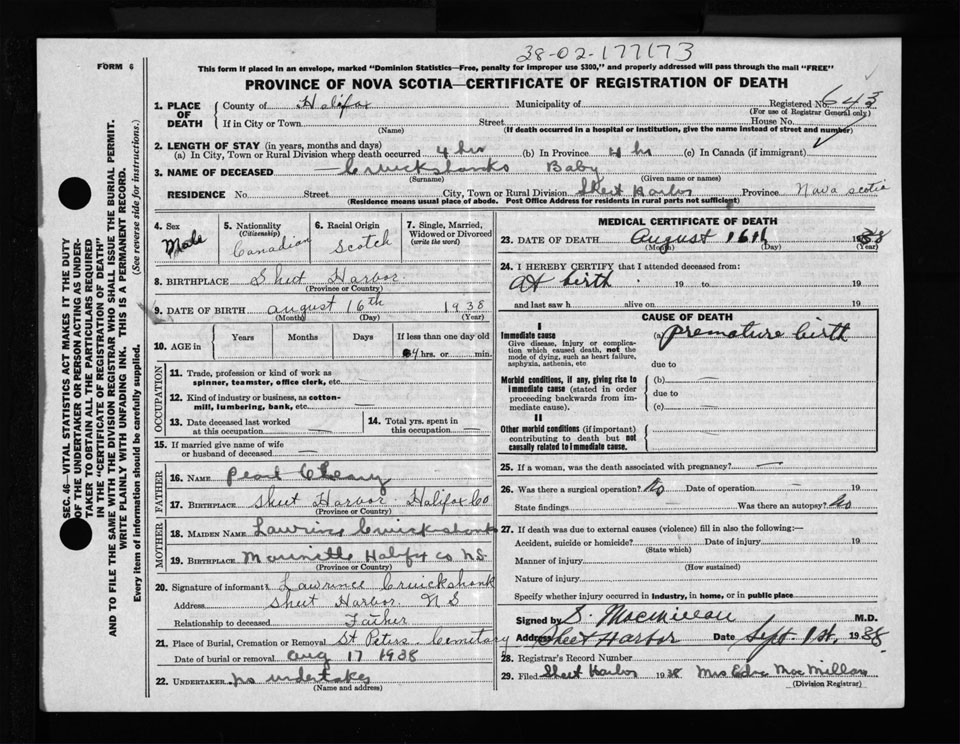 38-02-177173
FORM 6
This form if placed in an envelope, marked "Dominion Statistics—Free, penalty for improper use $300," and properly addressed will pass through the mail "FREE"
PROVINCE OF NOVA SCOTIA—CERTIFICATE OF REGISTRATION OF DEATH
1. PLACE OF DEATH { County of Halifax Municipality of Registered No. 643
(For use of Registrar General only)
If in City or Town Street House No.
(Name) (If death occurred in a hospital or institution, give the name instead of street and number)
2. LENGTH OF STAY (in years, months and days)
(a) In City, Town or Rural Division where death occurred 4 hrs (b) In Province 4 hs (c) In Canada (if immigrant)
3. NAME OF DECEASED Cruickshanks Baby
(Surname) (Given name or names)
RESIDENCE No. Street City, Town or Rural Division Sheet Harbor Province Nova Scotia
(Residence means usual place of abode. Post Office Address for residents in rural parts not sufficient)
4. Sex 5. Nationality 6. Racial Origin 7. Single, Married,
(Citizenship) Widowed or Divorced
(write the word)
Male Canadian Scotch
8. BIRTHPLACE Sheet Harbor
(Province or Country)
9. DATE OF BIRTH august 16th 1938
(Month) (Day) (Year)
10. AGE in Years Months Days If less than one day old
4 hrs. or min.
OCCUPATION
11. Trade, profession or kind of work as
spinner, teamster, office clerk, etc.
12. Kind of industry or business, as cotton-
mill, lumbering, bank, etc.
13. Date deceased last worked
at this occupation
14. Total yrs. spent in
this occupation
15. If married give name of wife
or husband of deceased
FATHER
16. NAME Pearl Cleary
17. BIRTHPLACE Sheet Harbor Halifax Co
(Province or Country)
MOTHER
18. MAIDEN NAME Cruickshank
19. BIRTHPLACE Halifax Co N.S.
(Province or Country)
20. Signature of informant Lawrence Cruickshank
Address Sheet Harbor N S
Relationship to deceased Father
21. Place of Burial, Cremation or Removal St Peters Cemetary
Date of burial or removal aug 17 1938
22. UNDERTAKER no undertaker
(Name and address)
MEDICAL CERTIFICATE OF DEATH
23. DATE OF DEATH August 16th 1938
(Month) (Day) (Year)
24. I HEREBY CERTIFY that I attended deceased from:
At birth 19 to 19
and last saw h alive on 19
CAUSE OF DEATH
I
Immediate cause (a) premature birth
Give disease, injury or complica-
tion which caused death, not the
mode of dying, such as heart failure,
asphyxia, asthenia, etc due to
Morbid conditions, if any, giving rise to (b)
immediate cause (stated in order due to
proceeding backwards from im-
mediate cause). (c)
II
Other morbid conditions (if important)
contributing to death but not
causally related to immediate cause.
25. If a woman, was the death associated with pregnancy?
26. Was there a surgical operation? No Date of operation 19
State findings Was there an autopsy? No
27. If death was due to external causes (violence) fill in also the following:—
Accident, suicide or homicide? Date of injury 19
(State which)
Manner of injury
(How sustained)
Nature of injury
Specify whether injury occurred in industry, in home, or in public place
Signed by S. Macmillan M.D.
Address Sheet Harbor Date Sept 1st, 1938
28. Registrar's Record Number
29. Filed Sheet Harbor 1938 Mrs MacMillan
(Division Registrar)
SEC. 46—VITAL STATISTICS ACT MAKES IT THE DUTY
OF THE UNDERTAKER OR PERSON ACTING AS UNDER-
TAKER TO OBTAIN ALL THE PARTICULARS REQUIRED
IN THE "CERTIFICATE OF REGISTRATION OF DEATH"
AND TO FILE THE SAME WITH THE DIVISION REGISTRAR WHO SHALL ISSUE THE BURIAL PERMIT.
WRITE PLAINLY WITH UNFADING INK. THIS IS A PERMANENT RECORD.
Every item of information should be carefully supplied. (See reverse side for instructions.)